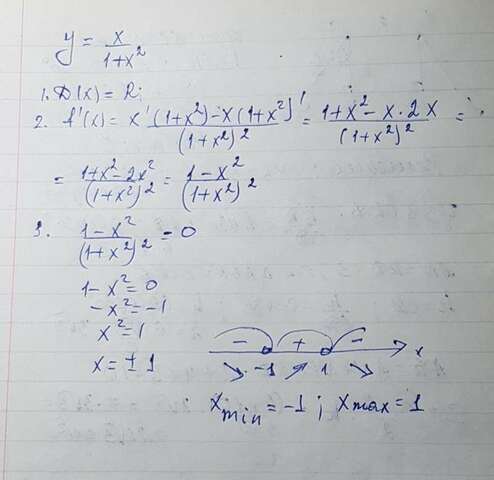 y = x/(1+x²)
1. D(x) = R;
2. f'(x) = x'(1+x²)-x(1+x²)'/(1+x²)² = 1+x²-x·2x/(1+x²)² =
= 1+x²-2x²/(1+x²)² = 1-x²/(1+x²)²
3. 1-x²/(1+x²)² = 0
1-x²=0
-x²=-1
x²=1
x=±1
- + -
↘ -1 ↗ 1 ↘ x
x min = -1 ; x max = 1